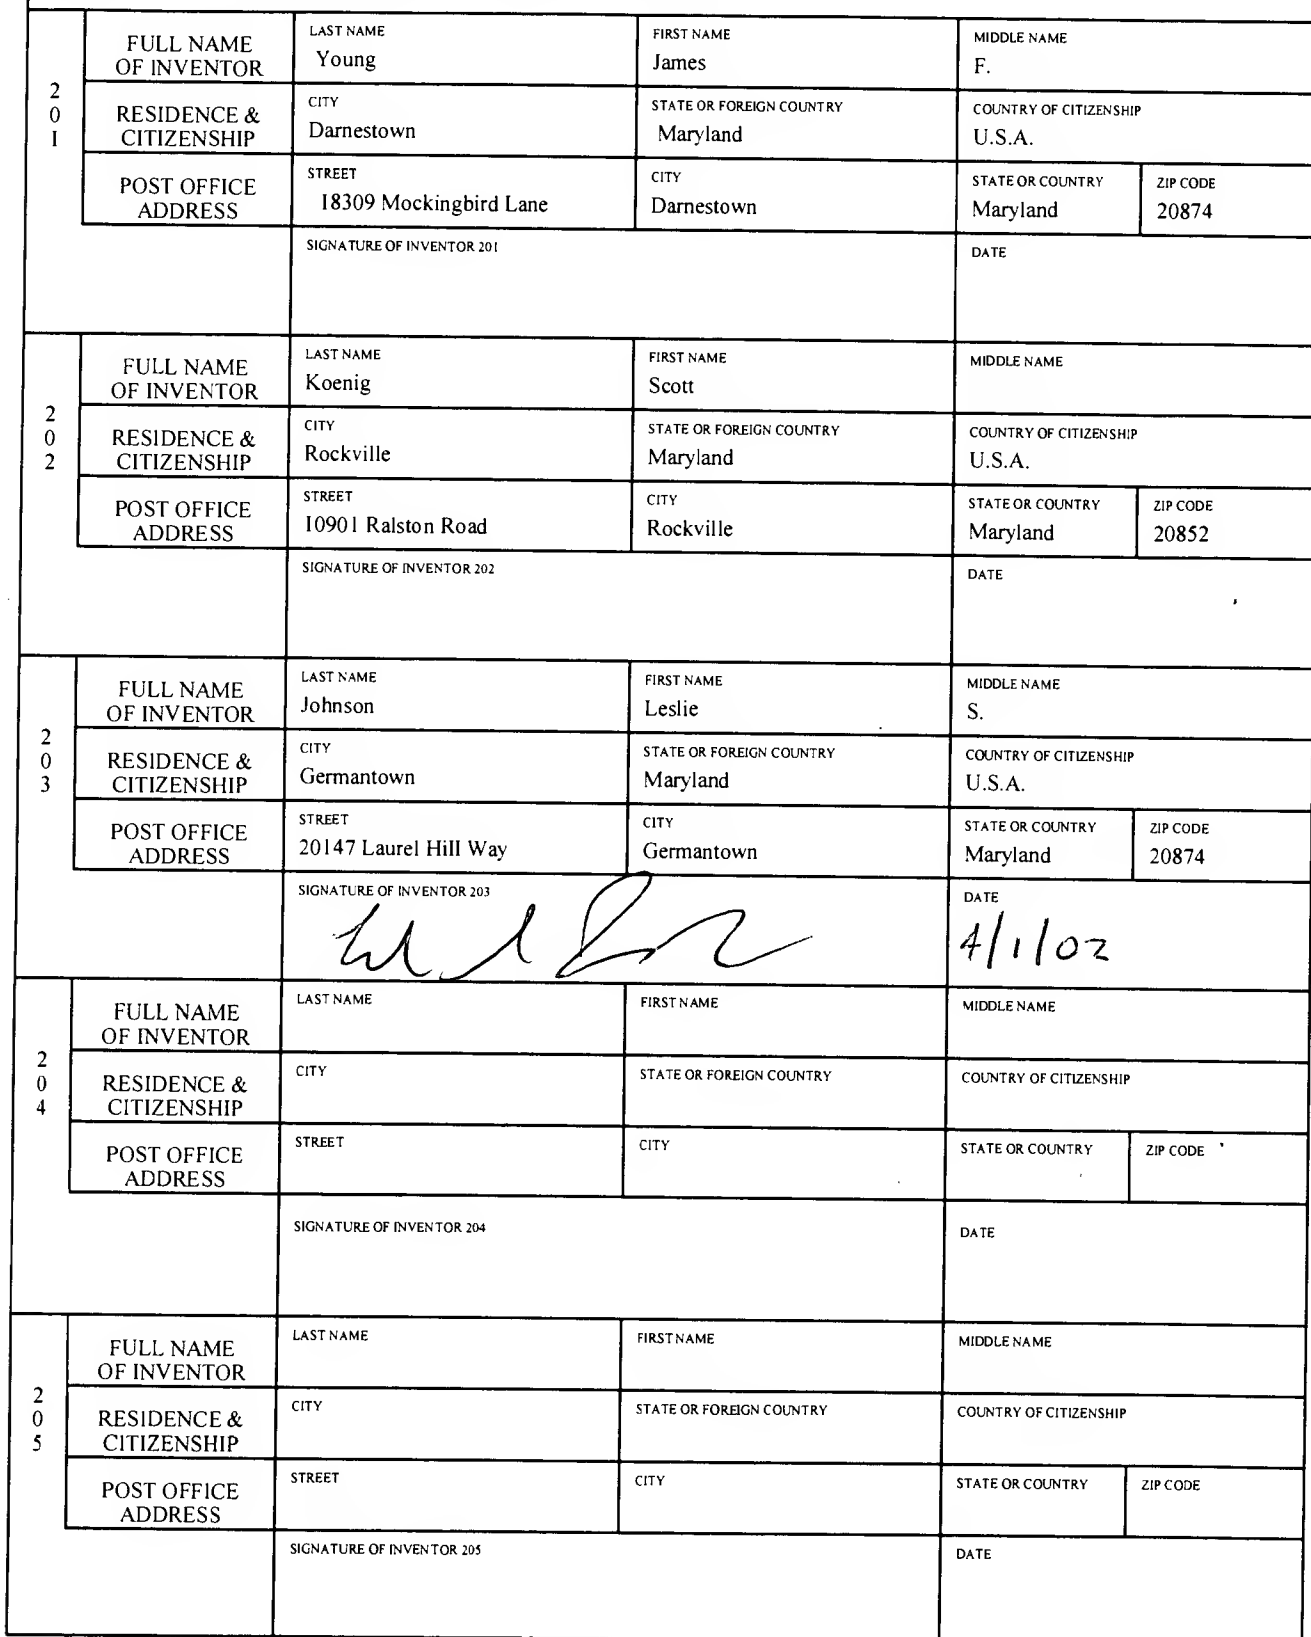 201
FULL NAME OF INVENTOR
LAST NAME
Young
FIRST NAME
James
MIDDLE NAME
F.
RESIDENCE & CITIZENSHIP
CITY
Darnestown
STATE OR FOREIGN COUNTRY
Maryland
COUNTRY OF CITIZENSHIP
U.S.A.
POST OFFICE ADDRESS
STREET
18309 Mockingbird Lane
CITY
Darnestown
STATE OR COUNTRY
Maryland
ZIP CODE
20874
SIGNATURE OF INVENTOR 201
DATE
202
FULL NAME OF INVENTOR
LAST NAME
Koenig
FIRST NAME
Scott
MIDDLE NAME
RESIDENCE & CITIZENSHIP
CITY
Rockville
STATE OR FOREIGN COUNTRY
Maryland
COUNTRY OF CITIZENSHIP
U.S.A.
POST OFFICE ADDRESS
STREET
10901 Ralston Road
CITY
Rockville
STATE OR COUNTRY
Maryland
ZIP CODE
20852
SIGNATURE OF INVENTOR 202
DATE
203
FULL NAME OF INVENTOR
LAST NAME
Johnson
FIRST NAME
Leslie
MIDDLE NAME
S.
RESIDENCE & CITIZENSHIP
CITY
Germantown
STATE OR FOREIGN COUNTRY
Maryland
COUNTRY OF CITIZENSHIP
U.S.A.
POST OFFICE ADDRESS
STREET
20147 Laurel Hill Way
CITY
Germantown
STATE OR COUNTRY
Maryland
ZIP CODE
20874
SIGNATURE OF INVENTOR 203
DATE
4/1/02
204
FULL NAME OF INVENTOR
LAST NAME
FIRST NAME
MIDDLE NAME
RESIDENCE & CITIZENSHIP
CITY
STATE OR FOREIGN COUNTRY
COUNTRY OF CITIZENSHIP
POST OFFICE ADDRESS
STREET
CITY
STATE OR COUNTRY
ZIP CODE
SIGNATURE OF INVENTOR 204
DATE
205
FULL NAME OF INVENTOR
LAST NAME
FIRST NAME
MIDDLE NAME
RESIDENCE & CITIZENSHIP
CITY
STATE OR FOREIGN COUNTRY
COUNTRY OF CITIZENSHIP
POST OFFICE ADDRESS
STREET
CITY
STATE OR COUNTRY
ZIP CODE
SIGNATURE OF INVENTOR 205
DATE